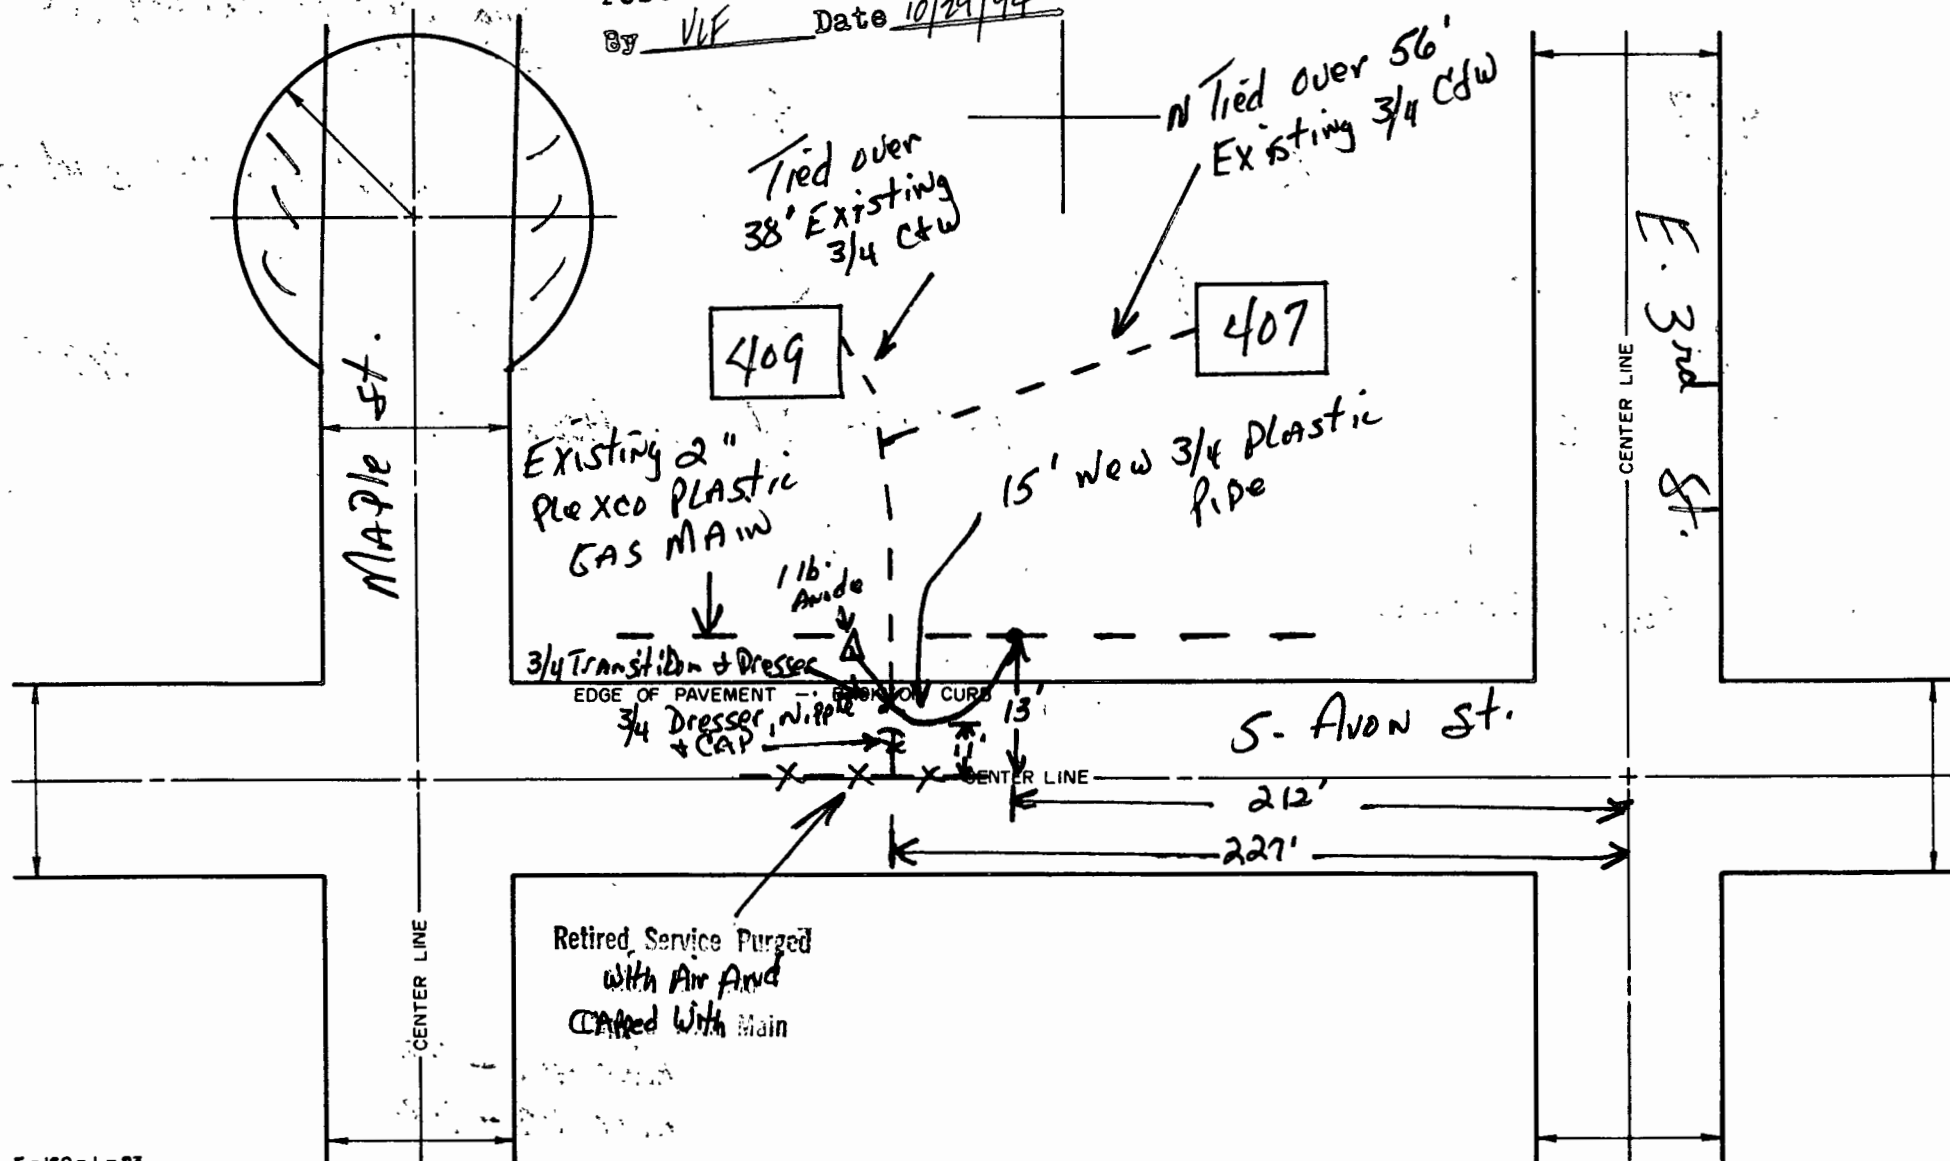 By VLF Date 10/29/94
N Tied over 56'
Existing 3/4 C&W
Tied over
38' Existing
3/4 C&W
409
407
Maple St.
E. 3rd St.
CENTER LINE
Existing 2"
Plexco Plastic
GAS MAIN
15' New 3/4 Plastic
Pipe
1 lb.
Anode
3/4 Transition & Dresser
EDGE OF PAVEMENT - BACK OF CURB
3/4 Dresser, Nipple
& CAP
11'
13'
S. Avon St.
CENTER LINE
212'
227'
Retired Service Purged
With Air And
Capped With Main
CENTER LINE